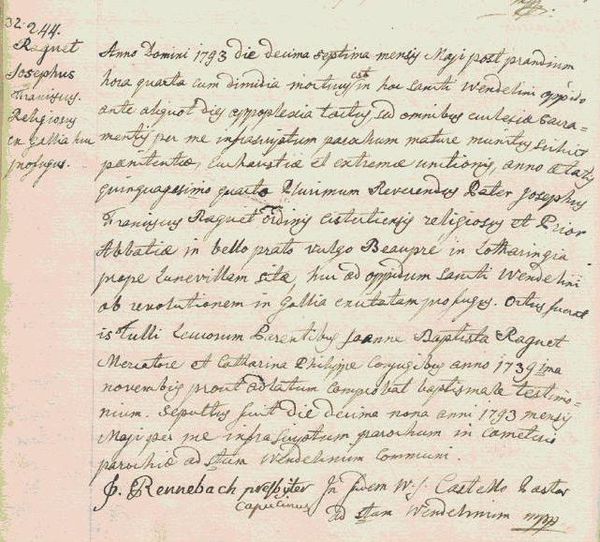 32. 244.
Raguet
Josephus
Franiscus.
Religiosus
ex gallia huc
profugus.
Anno Domini 1793 die decima septima mensis Maji post prandium
hora quarta cum dimidia mortuus est in hoc sancti Wendelini oppido
ante aliquot dies appoplexia tactus sed omnibus ecclesiæ sacra=
mentis per me infrascriptum parochum mature munitus scilicet
pænitentiæ, eucharistiæ et extremæ unctionis, anno ætatis
quinquagesimo quarto Plurimum Reverendus Pater Josephus
Franiscus Raguet ordinis cisterciensis religiosus et Prior
Abbatiæ in bello prato vulgo Beaupré in Lotharingia
prope Lunevillam sitæ, huc ad oppidum sancti Wendelini
ob revolutionem in Gallia exortam profugus. Ortus fuerat
is Tulli Leucorum Parentibus Joanne Baptista Raguet
Mercatore et Catharina Philippe Conjugibus anno 1739 1ma
novembris prout adlatum comprobat baptismale testimo=
nium. Sepultus fuit die decima nona anni 1793 mensis
Maji per me infrascriptum parochum in cæmeterio
parochiæ ad Stum Wendelinum communi.
P. Rennebach presbyter In fidem W. J. Castello Pastor
Capucinus ad Stum Wendelinum mpp